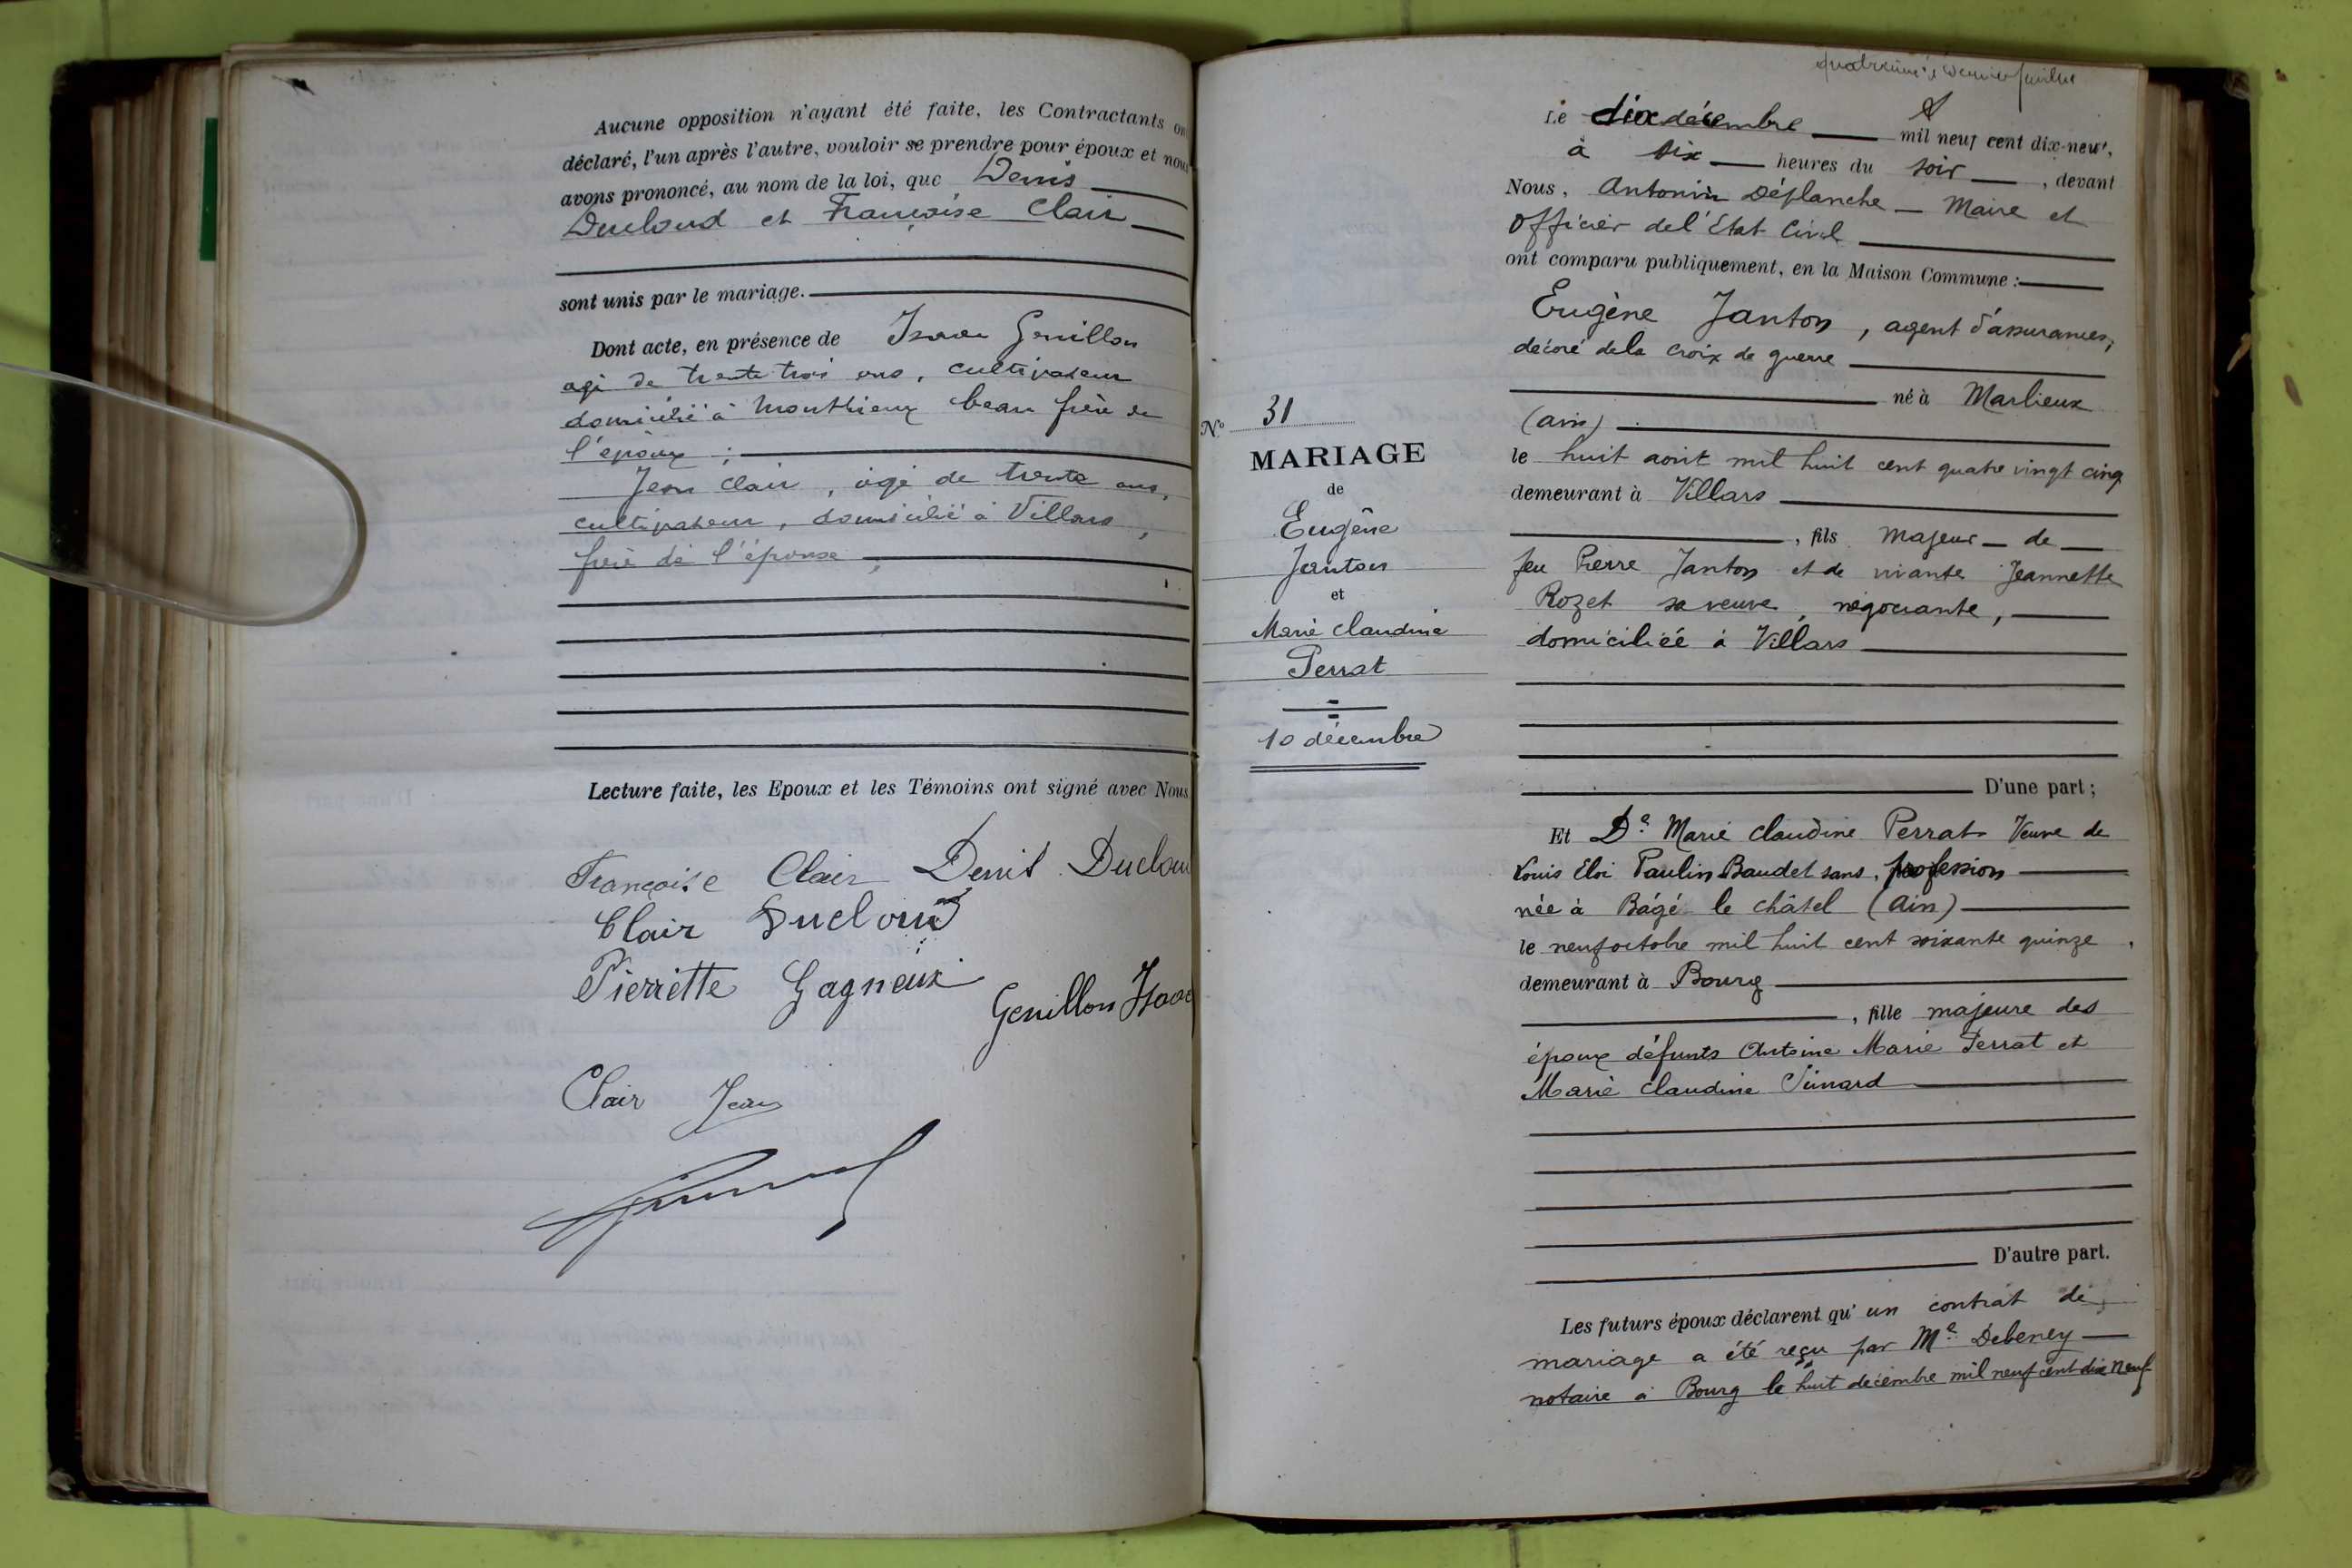 Aucune opposition n'ayant été faite, les Contractants on
déclaré, l'un après l'autre, vouloir se prendre pour époux et nous
avons prononcé, au nom de la loi, que Denis
Ducloud et Françoise Clair
sont unis par le mariage.
Dont acte, en présence de Isaac Genillon
agé de trente trois ans, cultivateur
domicilié à Monthieux beau frère de
l'époux ;
Jean Clair, agé de trente ans,
cultivateur, domicilié à Villars,
frère de l'épouse
Lecture faite, les Epoux et les Témoins ont signé avec Nous
Françoise Clair Denis Ducloud
Clair Ducloud
Pierrette Gagneux
Genillon Isaac
Clair Jean
feuillet
Le dix décembre mil neuf cent dix-neuf,
à six heures du soir, devant
Nous, Antonin Déplanche – Maire et
Officier de l'Etat Civil
ont comparu publiquement, en la Maison Commune :
Eugène Janton, agent d'assurances,
décoré de la croix de guerre
né à Marlieux
(ain)
le huit aout mil huit cent quatre vingt cinq
demeurant à Villars
, fils majeur – de
feu Pierre Janton et de vivante Jeannette
Rozet sa veuve, négociante,
domiciliée à Villars
D'une part ;
Nº 31
MARIAGE
de
Eugène
Janton
et
Marie Claudine
Perrat
10 décembre
Et De Marie Claudine Perrat Veuve de
Louis Eloi Paulin Baudet sans profession
née à Bâgé le châtel (Ain)
le neuf octobre mil huit cent soixante quinze,
demeurant à Bourg
, fille majeure des
époux défunts Antoine Marie Perrat et
Marie Claudine
D'autre part.
Les futurs époux déclarent qu'un contrat de
mariage a été reçu par Me Debeney
notaire à Bourg le huit décembre mil neuf cent dix neuf